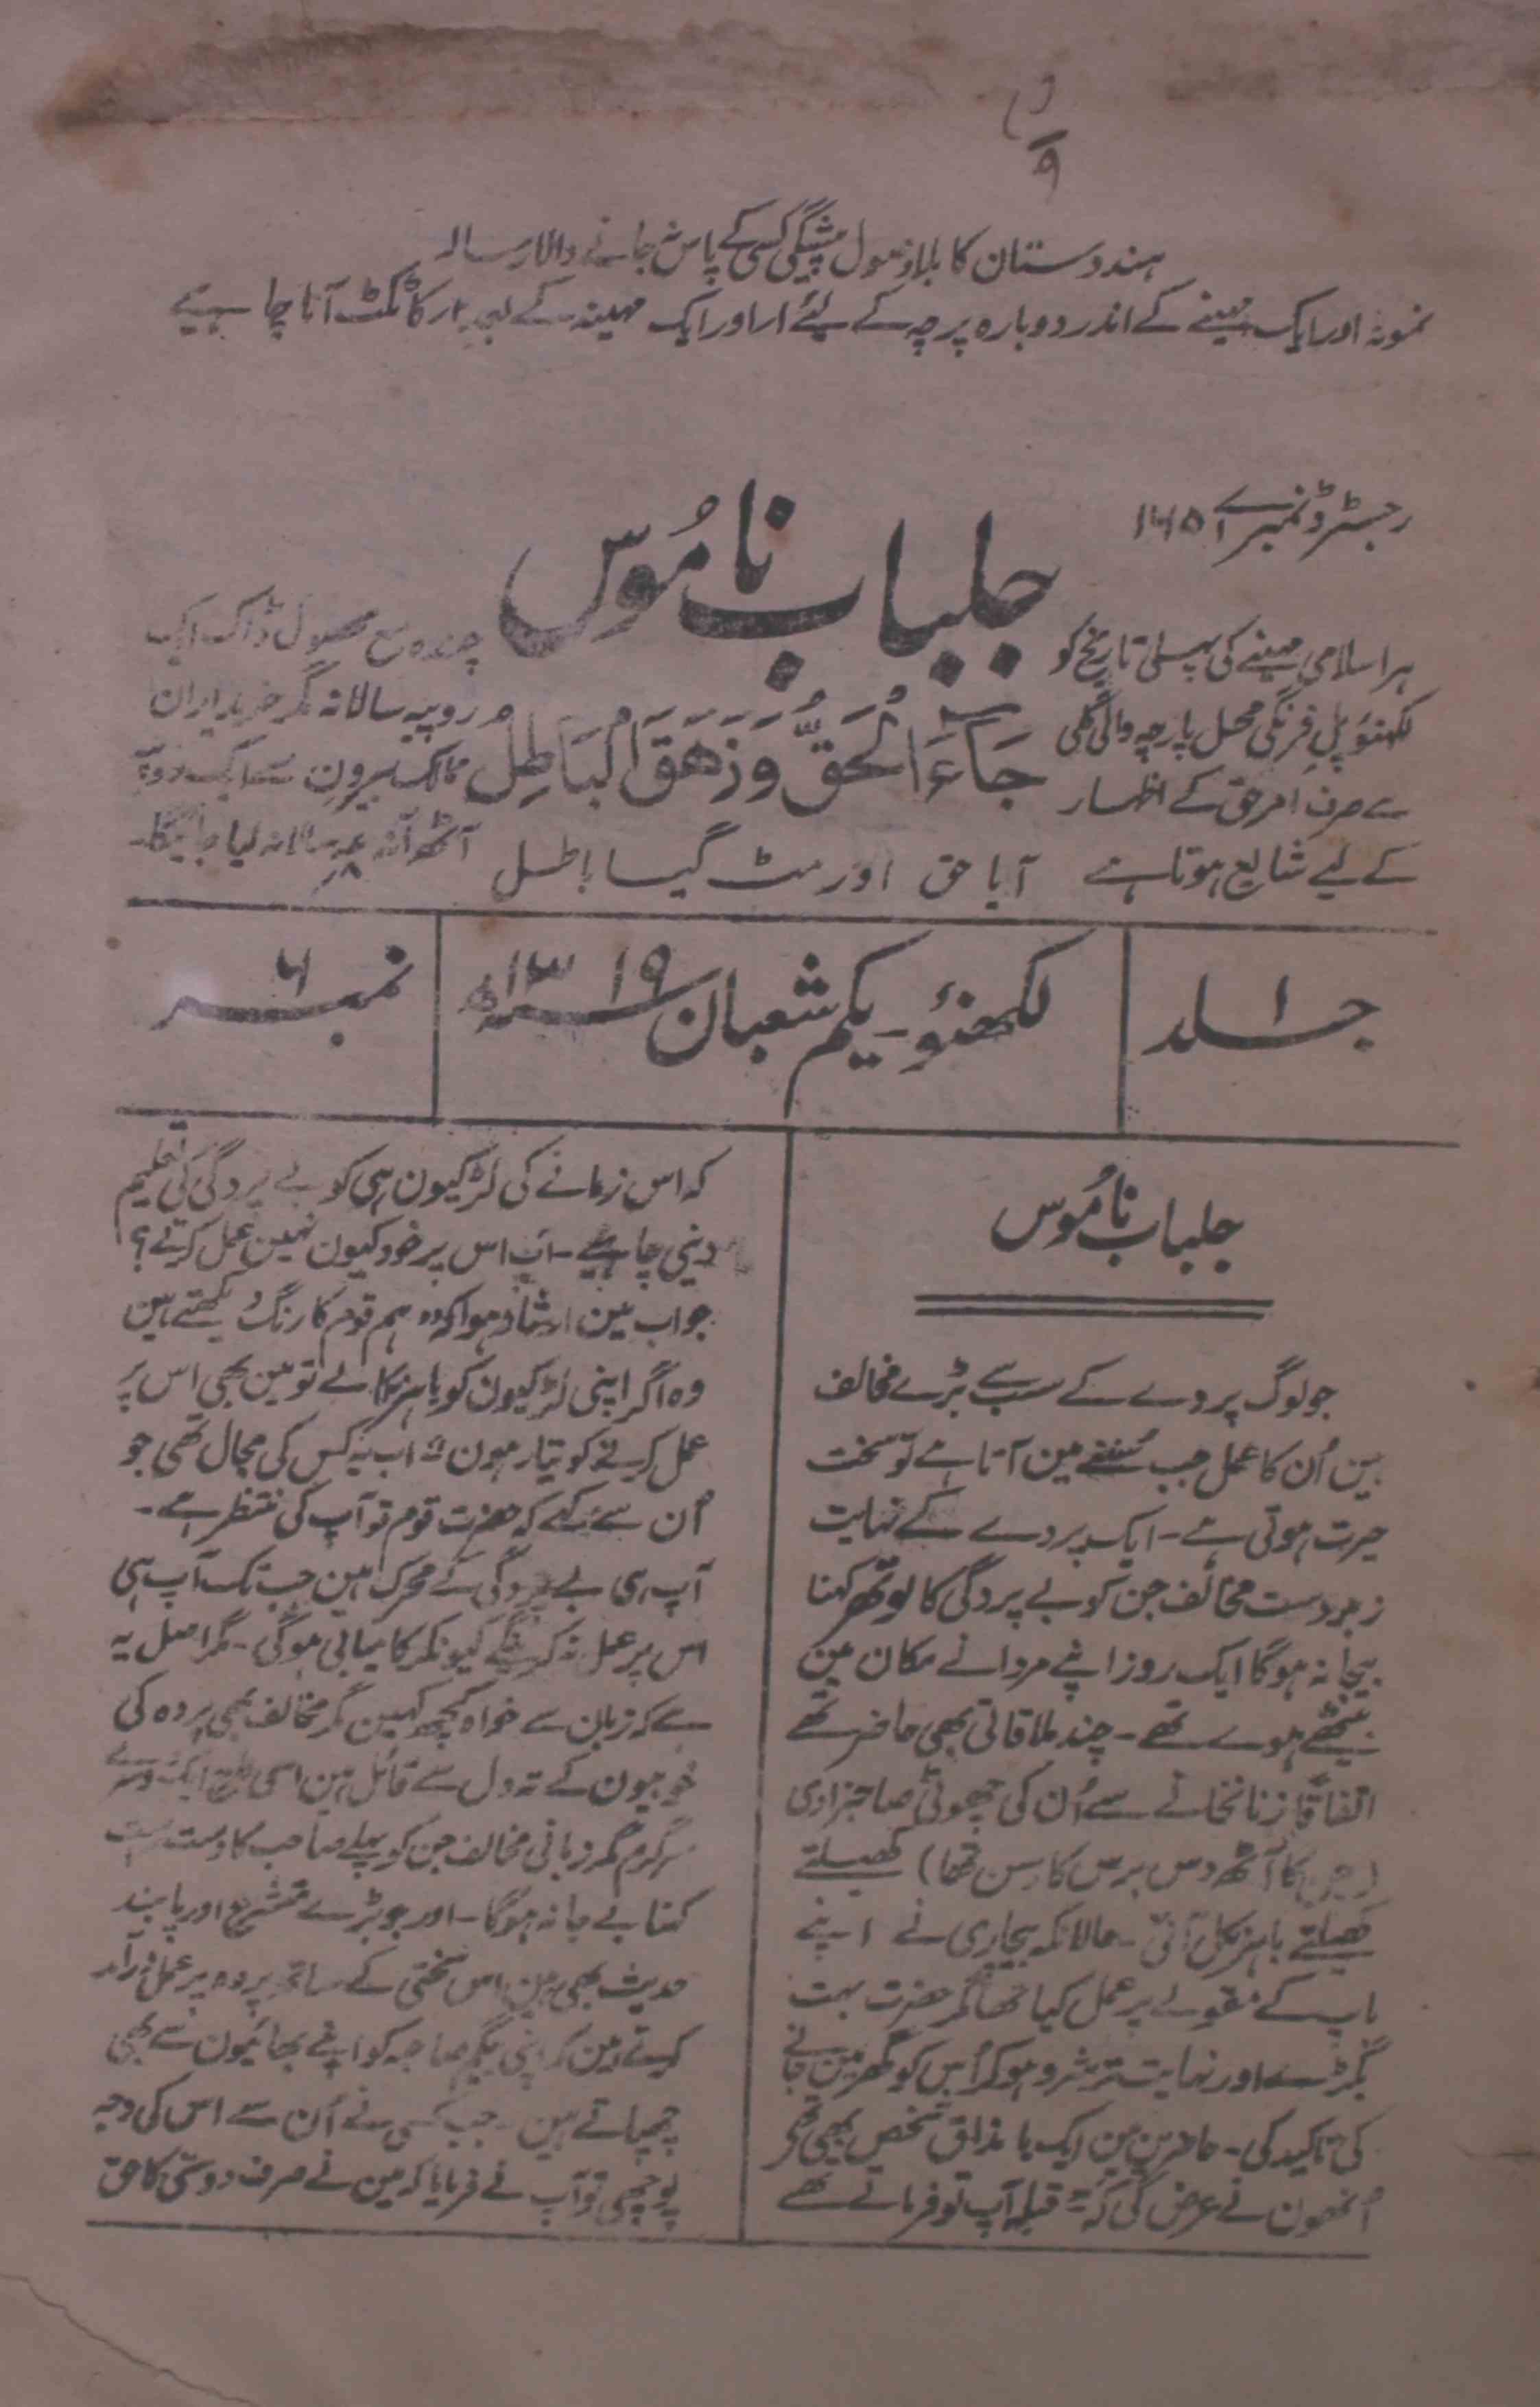 ہندوستان کا بلا وصول پیشگی کسی کے پاس نہ جانے والا رسالہ
نمونہ اور ایک مہینے کے اندر دوبارہ پرچہ کے لیے ار اور ایک مہینہ کے بعد ۲ر کا ٹکٹ آنا چاہیے
رجسٹرڈ نمبر اے ۱۶۵
جلباب ناموس
ہر اسلامی مہینے کی پہلی تاریخ کو
لکھنؤ پل فرنگی محل پارچہ والی گلی
سے صرف امر حق کے اظہار
کے لیے شایع ہوتا ہے
جَآءَ الْحَقُّ وَزَهَقَ الْبَاطِلُ
آیا حق اور مٹ گیا باطل
چندہ مع محصول ڈاک ایک
روپیہ سالانہ مگر خریداران
ممالک بیرون سے ایک روپیہ
آٹھ آنہ سالانہ لیا جائیگا۔
جلد ۱
لکھنؤ۔ یکم شعبان ۱۳۱۹ھ
نمبر ۶
جلباب ناموس
جو لوگ پردے کے سب سے بڑے مخالف
ہین اُن کا عمل جب سُننے مین آتا ہے تو سخت
حیرت ہوتی ہے۔ ایک پردے کے نہایت
زبردست مخالف جن کو بے پردگی کا لوتھر کہنا
بیجا نہ ہوگا ایک روز اپنے مردانے مکان مین
بیٹھے ہوے تھے۔ چند ملاقاتی بھی حاضر تھے
اتفاقاً زنانخانے سے اُن کی چھوٹی صاحبزادی
(جن کا آٹھ دس برس کا سن تھا) کھیلتے
کھیلتے باہر نکل آئی۔ حالانکہ بیچاری نے اپنے
باپ کے مقولے پر عمل کیا تھا مگر حضرت بہت
بگڑے اور نہایت ترشرو ہو کر اُس کو گھر مین جانے
کی تاکید کی۔ حاضرین مین ایک با مذاق شخص بھی تھے
اُنھون نے عرض کی کہ "قبلہ آپ تو فرماتے تھے
کہ اس زمانے کی لڑکیون ہی کو بے پردگی کی تعلیم
دینی چاہیے۔ اب اس پر خود کیون نہین عمل کرتے؟
جواب مین ارشاد ہوا کہ "ہم قوم کا رنگ دیکھتے ہین
وہ اگر اپنی لڑکیون کو باہر نکالے تو مین بھی اس پر
عمل کرنے کو تیار ہون" اب یہ کس کی مجال تھی جو
اُن سے کہے کہ حضرت قوم تو آپ کی منتظر ہے۔
آپ ہی بے پردگی کے محرک ہین جب تک آپ ہی
اس پر عمل نہ کرینگے کیونکر کامیابی ہوگی۔ مگر اصل یہ
ہے کہ زبان سے خواہ کچھ کہین مگر مخالف بھی پردہ کی
خوبیون کے تہ دل سے قائل ہین اسی طرح ایک دوسرے
سرگرم مگر زبانی مخالف جن کو پہلے صاحب کا دست راست
کہنا بے جا نہ ہوگا۔ اور جو بڑے متشرع اور پابند
حدیث بھی ہین اس سختی کے ساتھ پردہ پر عمل درآمد
کرتے ہین کہ اپنی بیگم صاحبہ کو اپنے بھائیون سے بھی
چھپاتے ہین۔ جب کسی نے اُن سے اس کی وجہ
پوچھی تو آپ نے فرمایا کہ مین نے صرف دوستی کا حق